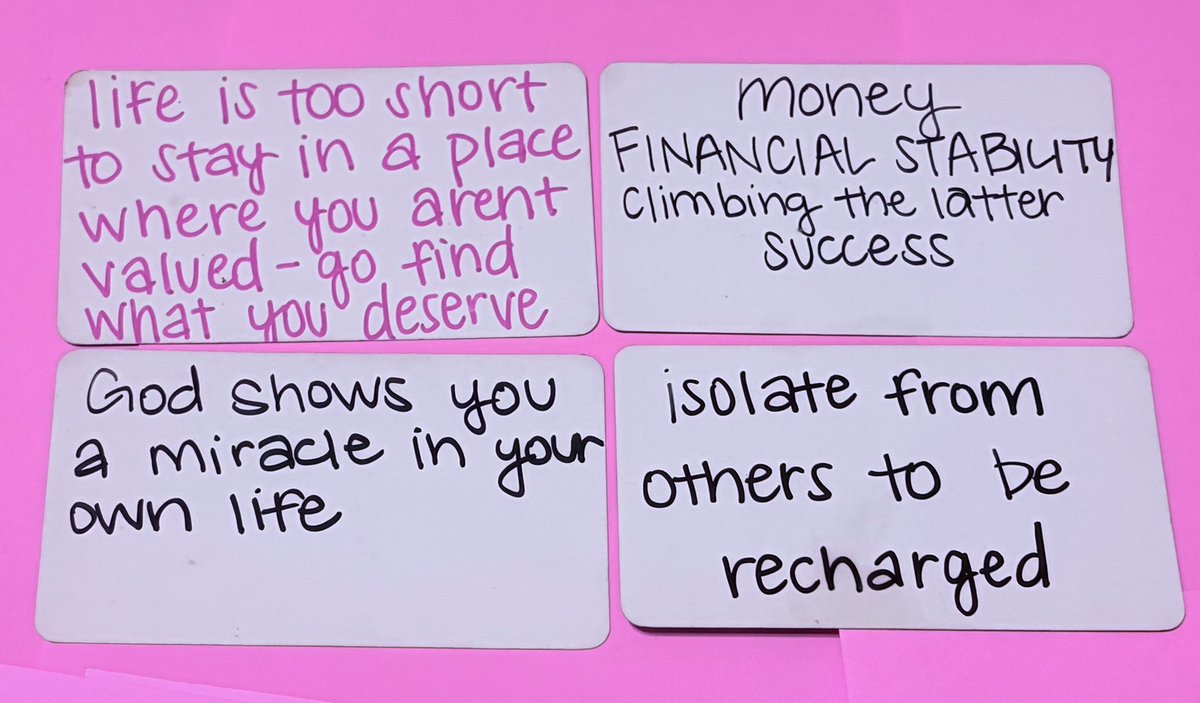 life is too short
to stay in a place
where you arent
valued - go find
what you deserve
money
FINANCIAL STABILITY
climbing the latter
success
God shows you
a miracle in your
own life
isolate from
others to be
recharged